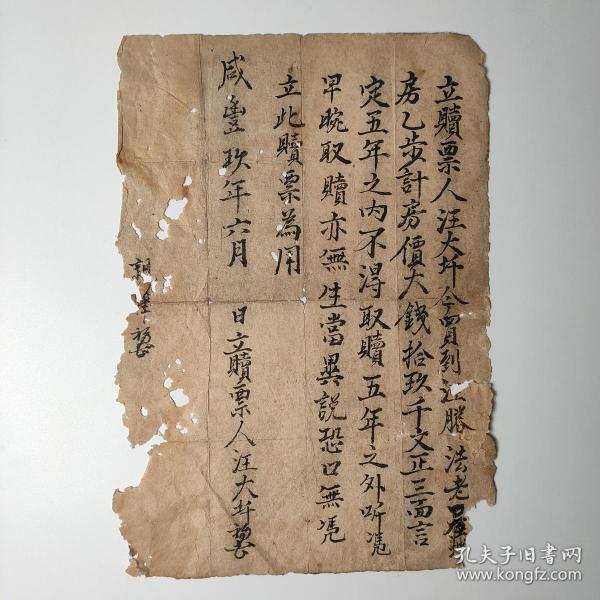 立贖票人汪大圩今買到汪勝法老屋
房乙步計房價大錢拾玖千文正三面言
定五年之内不得取贖五年之外听凴
早晼取贖亦無生當異説恐口無凴
立此贖票為用
咸豐玖年六月 日立贖票人汪大圩
親筆
孔夫子旧书网
www.kongfz.com